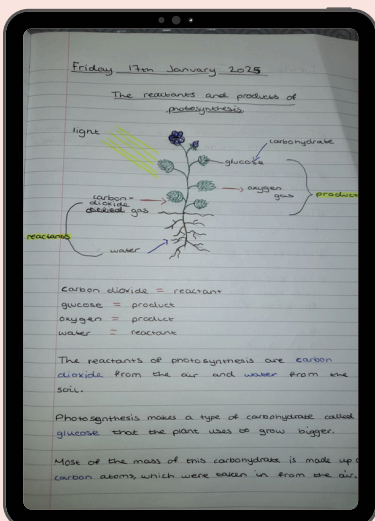 Friday 17th January 2025
The reactants and products of
photosynthesis
light
carbohydrate
glucose
oxygen
gas
products
carbon-
dioxide
gas
reactants
water
carbon dioxide = reactant
glucose = product
oxygen = product
water = reactant
The reactants of photosynthesis are carbon
dioxide from the air and water from the
soil.
Photosynthesis makes a type of carbohydrate called
glucose that the plant uses to grow bigger.
Most of the mass of this carbohydrate is made up
carbon atoms, which were taken in from the air.